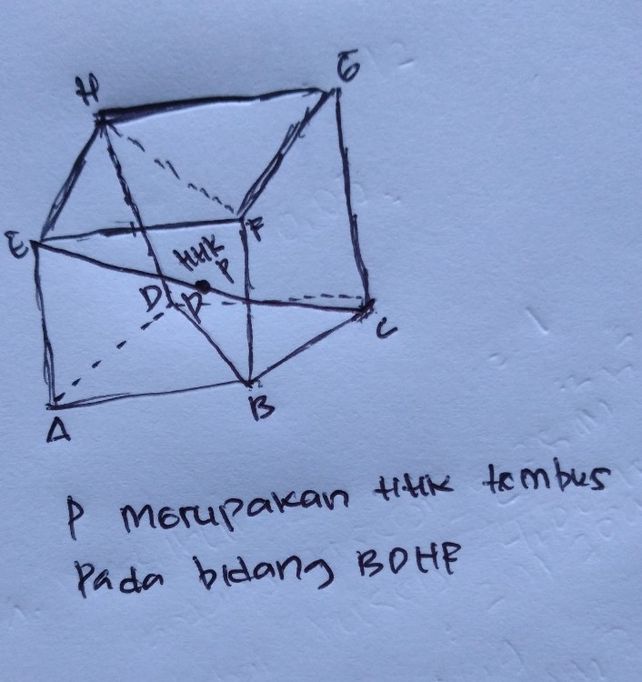 H
G
E
F
titik
P
D
P
C
A
B
P merupakan titik tembus
Pada bidang BDHF